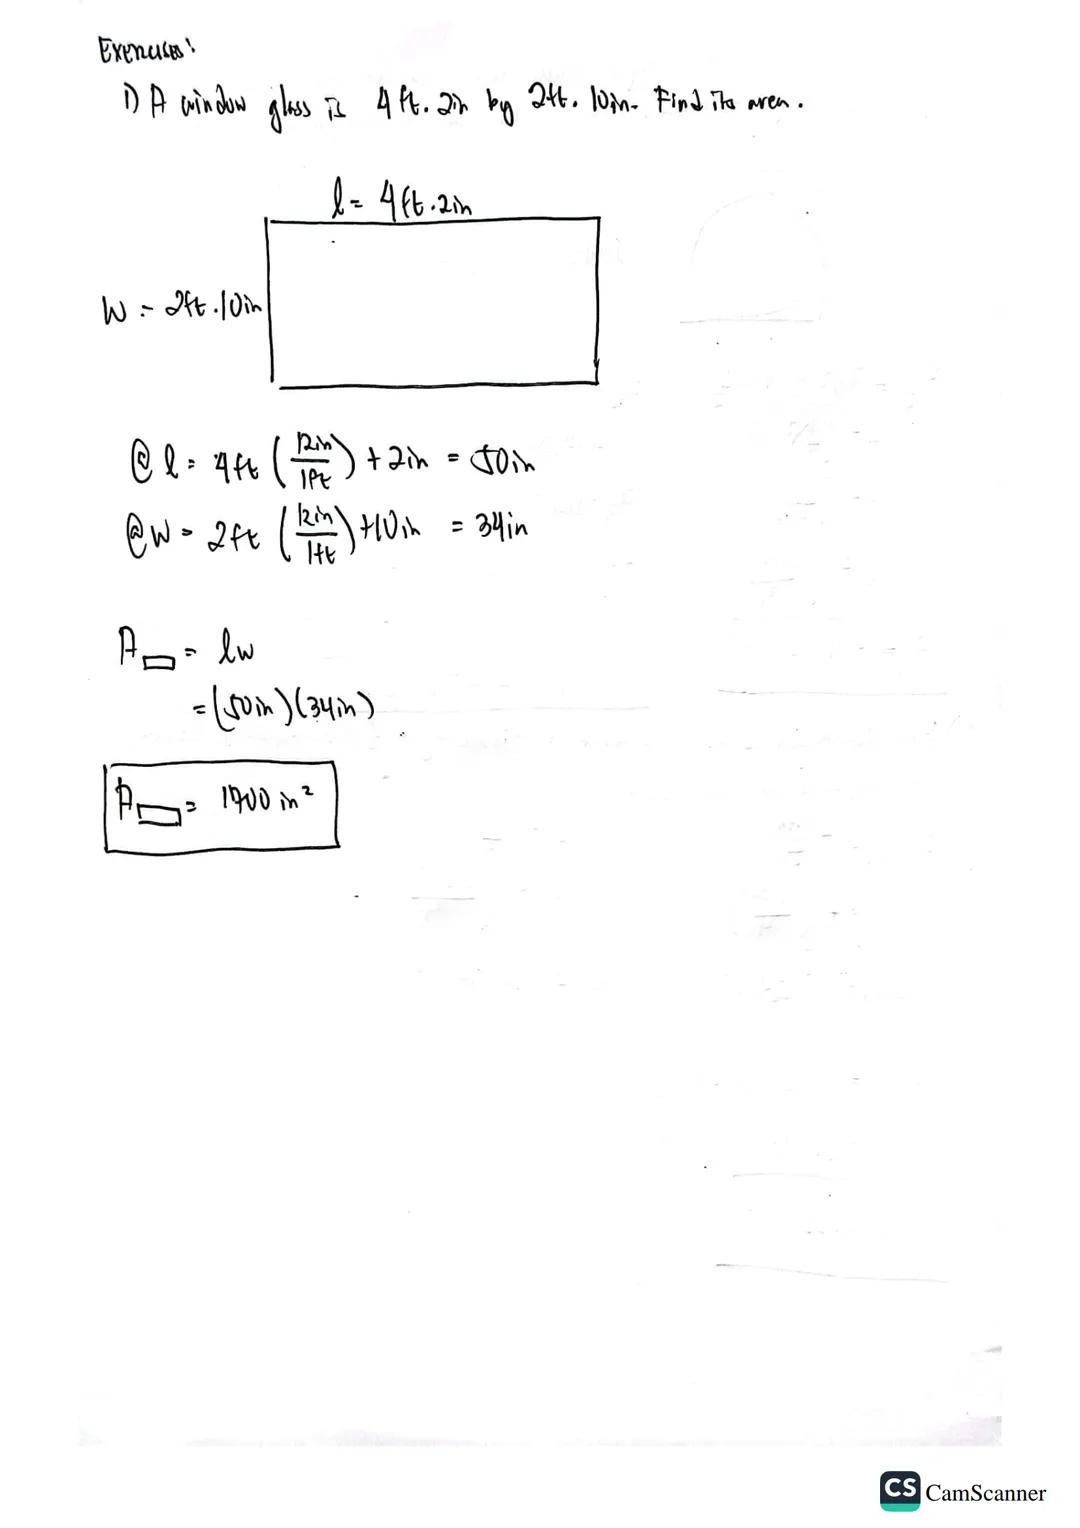 Exercises:
1) A window glass is 4ft. 2in by 2ft. 10in. Find its area.
l = 4ft.2in
W = 2ft.10in
@ l = 4ft (12in/1ft) + 2in = 50in
@ W = 2ft (12in/1ft) + 10in = 34in
A▭ = lw
= (50in)(34in)
A▭ = 1700 in²
CS CamScanner